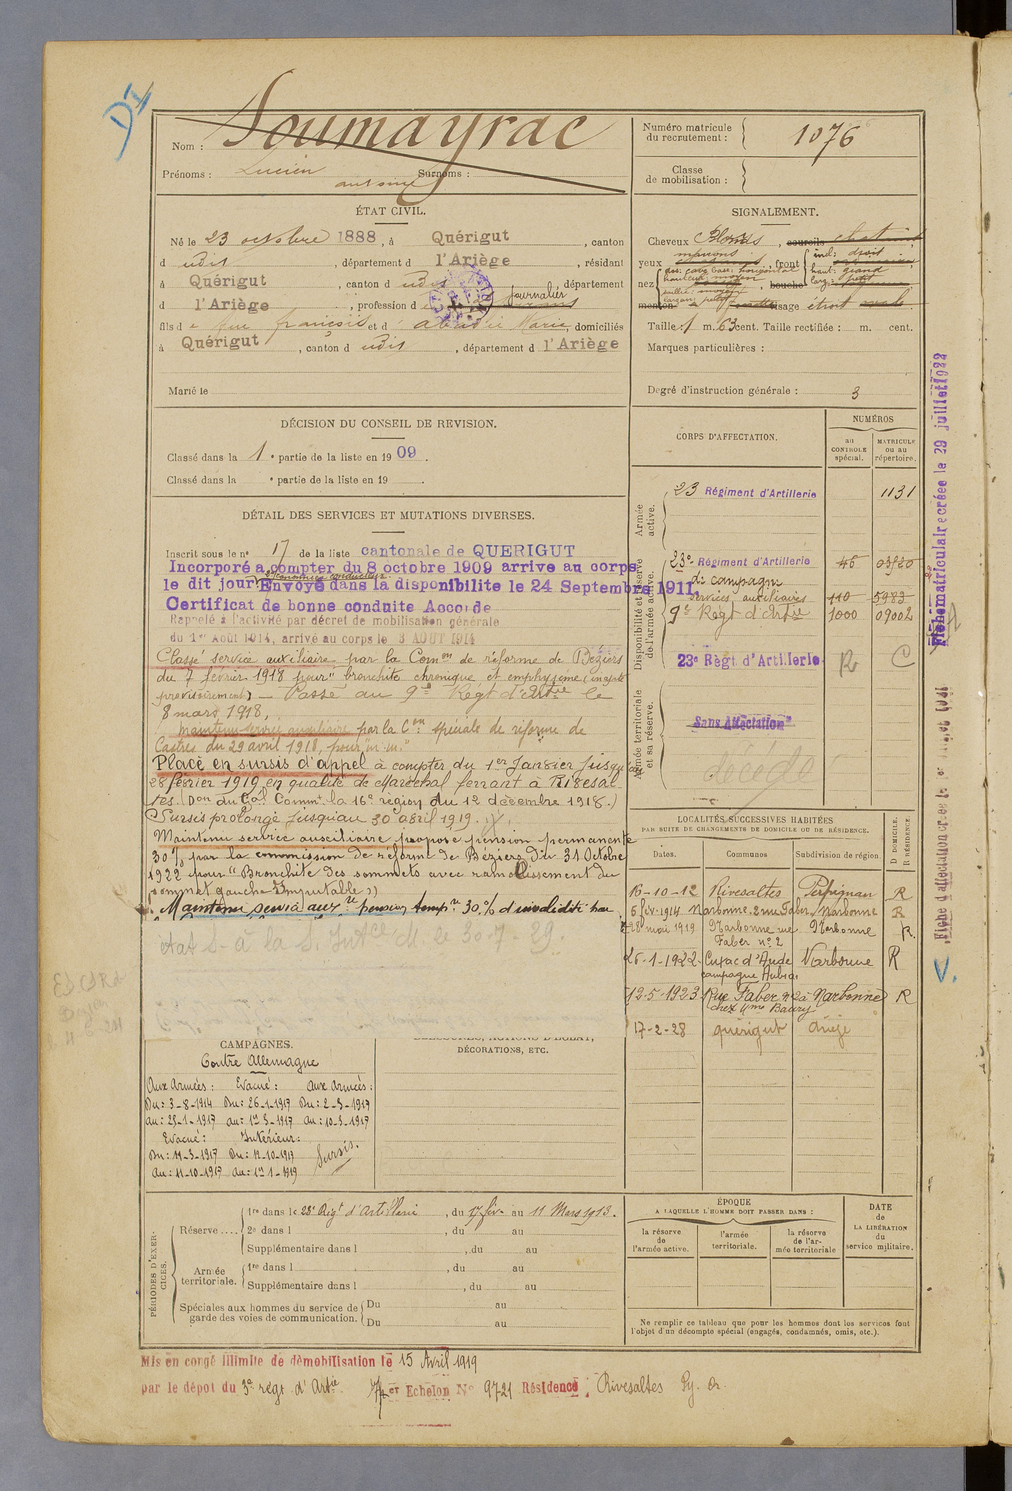 DI
Nom : Soumayrac
Prénoms : Lucien antoine Surnoms :
Numéro matricule du recrutement : 1076
Classe de mobilisation :
ÉTAT CIVIL.
Né le 23 octobre 1888, à Quérigut, canton
d udit, département d l'Ariège, résidant
à Quérigut, canton d udit, département
d l'Ariège, profession d journalier
fils d e feu françois et d' abadie Marie, domiciliés
à Quérigut, canton d udit, département d l'Ariège
Marié le
SIGNALEMENT.
Cheveux Blonds, sourcils chatains
yeux marrons, front incl: droit
haut: grand
larg: petit
nez dos: cave base: horizontal
hauteur: moyen
saillie: moyenne
largeur: petit
, bouche
menton visage étroit
Taille: 1 m. 63 cent. Taille rectifiée : m. cent.
Marques particulières :
Degré d'instruction générale : 3
DÉCISION DU CONSEIL DE REVISION.
Classé dans la 1e partie de la liste en 1909.
Classé dans la e partie de la liste en 19 .
CORPS D'AFFECTATION.
NUMÉROS
au CONTROLE spécial.
MATRICULE ou au répertoire.
Armée active.
23 Régiment d'Artillerie 1131
Disponibilité et réserve de l'armée active.
23e Régiment d'Artillerie 46
de campagne
services auxiliaires 110 5983
9e Régt d'Artie 1000 09002
23e Régt d'Artillerie R C
Armée territoriale et sa réserve.
Sans Affectation
décédé
DÉTAIL DES SERVICES ET MUTATIONS DIVERSES.
Inscrit sous le no 17 de la liste cantonale de QUERIGUT
Incorporé a compter du 8 octobre 1909 arrive au corps
le dit jour. Envoyé dans la disponibilite le 24 Septembre 1911.
Certificat de bonne conduite Accorde
Rappelé à l'activité par décret de mobilisation générale
du 1er Août 1914, arrivé au corps le 3 AOUT 1914
Classé service auxiliaire par la Comon de réforme de Béziers
du 7 février 1918 pour "bronchite chronique et emphysème (inapte
provisoirement) — Passé au 9e Régt d'Artie le
8 mars 1918,
Maintenu service auxiliaire par la Con spéciale de réforme de
Castres du 29 avril 1918, pour "m. m."
Placé en sursis d'appel à compter du 1er Janvier jusqu'au
28 février 1919 en qualité de Maréchal ferrant à Rivesal-
tes. (Don du Gal Commt la 16e région du 12 décembre 1918.)
Sursis prolongé jusqu'au 30 avril 1919.
Maintenu service auxiliaire propose pension permanente
30% par la commission de réforme de Béziers du 31 Octobre
1922 pour "Bronchite des sommets avec ramollissement du
sommet gauche Imputable"
Maintenu service auxre pension tempre 30% d'invalidité
LOCALITÉS SUCCESSIVES HABITÉES
PAR SUITE DE CHANGEMENTS DE DOMICILE OU DE RÉSIDENCE.
Dates. Communes Subdivision de région. D DOMICILE. R RÉSIDENCE.
16-10-12 Rivesaltes Perpignan R
6 fév. 1914 Narbonne, 2 rue Faber Narbonne R
28 mai 1919 Narbonne rue Faber no 2 Narbonne R.
26-1-1922 Cuxac d'Aude Narbonne R
12-5-1923 Rue Faber no 2 à Narbonne R
chez Mme Baury
17-2-28 querigut
CAMPAGNES.
Contre Allemagne
Aux Armées : Evacué : Aux Armées :
Du : 3-8-1914 Du : 26-1-1917 Du : 2-3-1917
au : 25-1-1917 au : 1er-3-1917 au : 10-3-1917
Evacué : Intérieur :
Du : 11-3-1917 Du : 12-10-1917
au : 11-10-1917 au : 1er-1-1919
Sursis.
BLESSURES, ACTIONS D'ÉCLAT,
DÉCORATIONS, ETC.
PÉRIODES D'EXERCICES.
Réserve .... 1re dans le 23e Régt d'Artillerie, du 17 fév. au 11 Mars 1913.
2e dans l , du au
Supplémentaire dans l , du au
Armée territoriale. 1re dans l , du au
Supplémentaire dans l , du au
Spéciales aux hommes du service de garde des voies de communication. Du au
Du au
ÉPOQUE
A LAQUELLE L'HOMME DOIT PASSER DANS :
la réserve de l'armée active.
l'armée territoriale.
la réserve de l'armée territoriale
DATE de LA LIBÉRATION du service militaire.
Ne remplir ce tableau que pour les hommes dont les services font
l'objet d'un décompte spécial (engagés, condamnés, omis, etc.).
Mis en congé illimité de démobilisation le 15 Avril 1919
par le dépot du 3e régt d'Artie 7er Echelon No 9721 Résidence Rivesaltes Py. Or.
Fiche matriculaire créée le 29 juillet 1922